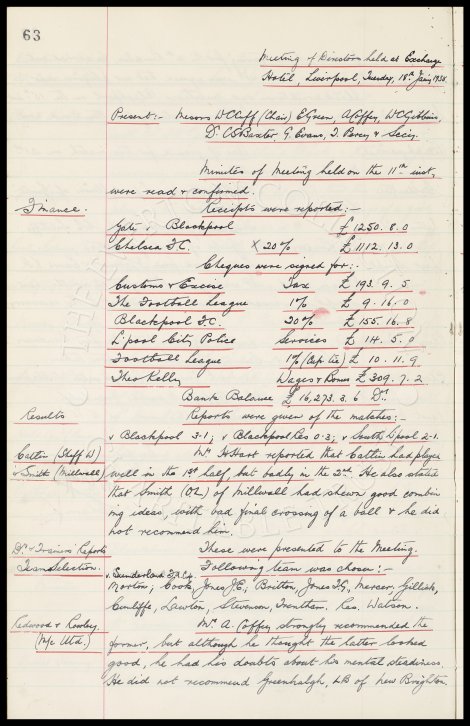 63
Meeting of Directors held at Exchange
Hotel, Liverpool, Tuesday, 18th Jany 1938.
Present:- Messrs W Cuff (Chair) E Green, A Coffey, W C Gibbins,
Dr C S Baxter, G. Evans, T. Percy & Secy.
Minutes of Meeting held on the 11th inst,
were read & confirmed.
Finance.
Receipts were reported:-
Gate v Blackpool £1250. 8. 0
Chelsea F.C. X 20% £1112. 13. 0
Cheques were signed for:-
Customs & Excise Tax £193. 9. 5
The Football League 1% £ 9. 16. 0
Blackpool F.C. 20% £155. 16. 8
L'pool City Police Services £ 14. 5. 0
Football League 1% (Cup tie) £ 10. 11. 9
Theo Kelly Wages & Bonus £309. 7. 2
Bank Balance £16,273. 3. 6 Dr.
Results
Reports were given of the matches:-
v Blackpool 3-1; v Blackpool Res 0-3; v South L'pool 2-1.
Catlin (Sheff W)
& Smith (Millwall)
Mr H Hart reported that Catlin had played
well in the 1st half, but badly in the 2nd. He also stated
that Smith (OL) of Millwall had shewn good combin
ing ideas, with bad final crossing of a ball & he did
not recommend him.
Dr & Trainers Reports
These were presented to the Meeting.
Team Selection.
Following team was chosen:-
v. Sunderland F.A.Cup
Morton; Cook, Jones J.E; Britton, Jones T.G, Mercer; Gillick,
Cunliffe, Lawton, Stevenson, Trentham. Res. Watson.
Redwood & Rowley
(M/c Utd.)
Mr A. Coffey strongly recommended the
former, but although he thought the latter looked
good, he had his doubts about his mental steadiness.
He did not recommend Greenhalgh, LB of New Brighton.